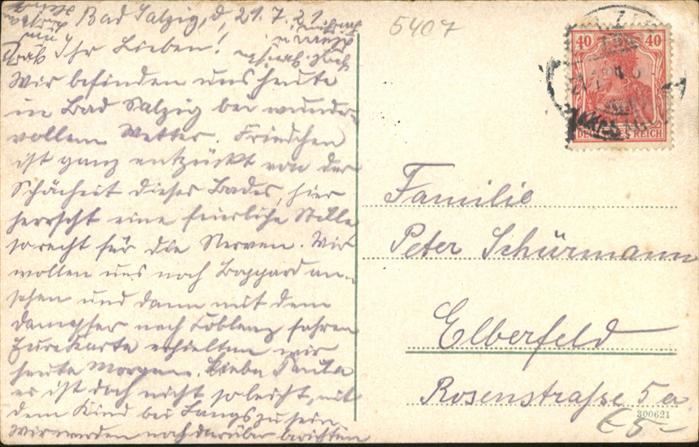 Bad Salzig, d, 21.7.21
Ihr Lieben!
Wir befinden uns heute
in Bad Salzig bei wunder-
vollem Wetter. Friedchen
ist ganz entzückt von der
Schönheit dieses Bades, hier
herrscht eine feierliche Stille
so recht für die Nerven. Wir
wollen uns noch Boppard an-
sehen und dann mit dem
Dampfer nach Coblenz fahren
Eure Karte erhielten wir
heute Morgen. Liebe Paula
es ist doch nicht so leicht, mit
dem Kind bei Langs zu sein
Wir werden noch darüber berichten
5407
40 40
DEUTSCHES REICH
Familie
Peter Schürmann
Elberfeld
Rosenstraße 5a
300621
€5-